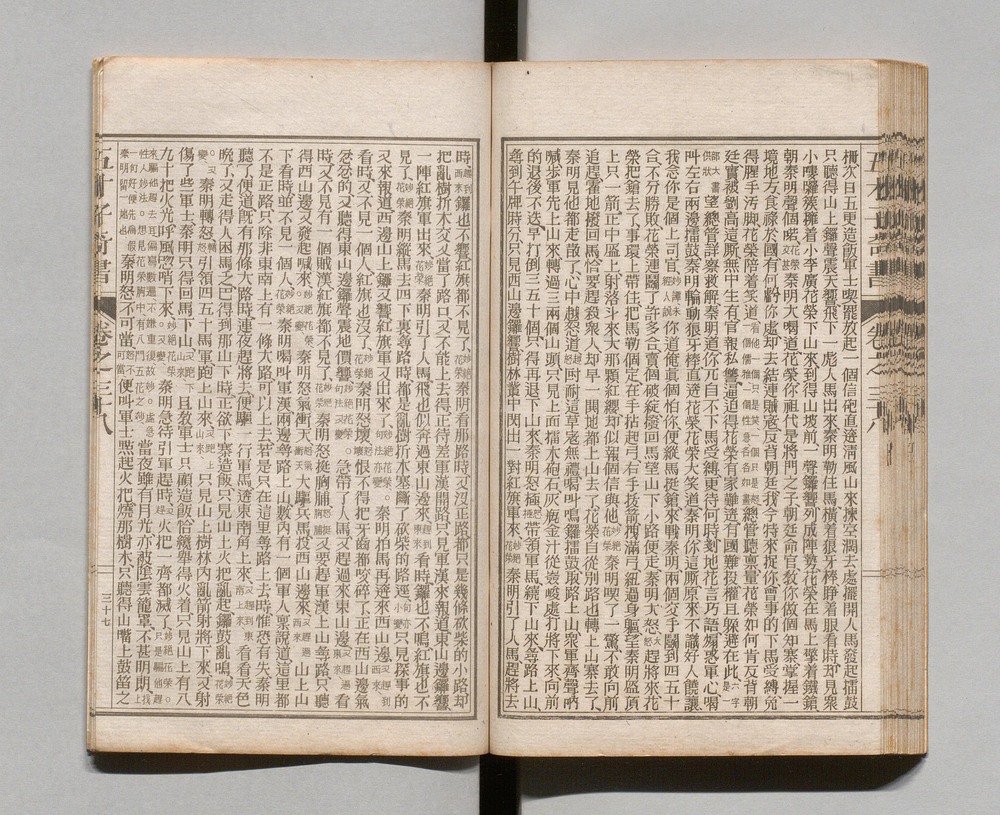 柵次日五更造飯軍士喫罷放起一個信砲直逩清風山來揀空濶去處擺開人馬發起擂鼓
只聽得山上鑼聲震天響飛下一彪人馬出來秦明勒住馬橫着狼牙棒睜着眼看時却見衆
小嘍囉簇擁着小李廣花榮下山來到得山坡前一聲鑼響列成陣勢花榮在馬上擎着鐵鎗
朝秦明聲個喏花榮秦明大喝道花榮你祖代是將門之子朝廷命官教你做個知寨掌握一
境地方食祿於國有何虧你處却去結連賊寇反背朝廷我今特來捉你會事的下馬受縛免
得腥手汚脚花榮陪着笑道看他一個只是笑一個只是怒一個儒雅一個性急各各如畫總管聽稟量花榮如何肯反背朝
廷實被劉高這厮無中生有官報私讐逼迫得花榮有家難逩有國難投權且躱避在此六字是一
部大書供狀望總管詳察救解秦明道你兀自不下馬受縛更待何時剗地花言巧語煽惑軍心喝
叫左右兩邊擂鼓秦明輪動狼牙棒直逩花榮花榮大笑道秦明你這厮原來不識好人饒讓
我念你是個上司官你道俺真個怕你便縱馬挺鎗來戰秦明兩個交手鬭到四五十
合不分勝敗花榮連鬭了許多合賣個破綻撥回馬望山下小路便走秦明大怒大怒趕將來花
榮把鎗去了事環上帶住把馬勒個定左手拈起弓右手拔箭拽滿弓扭過身軀望秦明盔頂
上只一箭正中盔上射落斗來大那顆紅纓却似報個信與他妙絕花榮秦明喫了一驚不敢向前
追趕霍地撥回馬恰要趕殺衆人却早一鬨地都上山去了花榮自從別路也轉上山寨去了
秦明見他都走散了心中越怒道越怒尀耐這草寇無禮喝叫鳴鑼擂鼓取路上山衆軍齊聲吶
喊步軍先上山來轉過三兩個山頭只見上面擂木砲石灰瓶金汁從嶮峻處打將下來向前
的退後不迭早打倒三五十個只得再退下山來秦明怒極怒極帶領軍馬繞下山來尋路上山
尋到午牌時分只見西山邊鑼響樹林叢中閃出一對紅旗軍來妙絕花榮秦明引了人馬趕將去
時趕到西來鑼也不響紅旗都不見了妙絕花榮秦明看那路時又沒正路都只是幾條砍柴的小路却
把亂樹折木交叉當了路口又不能上去得正待差軍漢開路只見軍漢來報道東山邊鑼響
一陣紅旗軍出來妙絕花榮秦明引了人馬飛也似奔過東山邊來趕到東來看時鑼也不鳴紅旗也不
見了妙絕花榮秦明縱馬去四下裏尋路時都是亂樹折木塞斷了砍柴的路逕句亦小變只見探事的
又來報道西邊山上鑼又響紅旗軍又出來了妙絕花榮句法亦變秦明拍馬再逩來西山邊又趕到西來
看時又不見一個人紅旗也沒了妙絕花榮秦明怒壞怒壞恨不得把牙齒都咬碎了正在西山邊氣
忿忿的又聽得東山邊鑼聲震地價響妙絕花榮句法又變急帶了人馬又趕過來東山邊又趕過東來看
時又不見有一個賊漢紅旗都不見了妙絕花榮秦明怒挺胸脯怒挺胸脯又要趕軍漢上山尋路只聽
得西山邊又發起喊來妙絕花榮又變秦明怒氣衝天大驅兵馬投西山邊來又趕過西來山上山
下看時並不見一個人妙絕花榮秦明喝叫軍漢兩邊尋路上山數內有一個軍人禀說道這里都
不是正路只除非東南上有一條大路可以上去若是只在這里尋路上去時惟恐有失秦明
聽了便道旣有那條大路時連夜趕將去便驅一行軍馬逩東南角上來又趕到東南上來看看天色
晚了又走得人困馬乏巴得到那山下時正欲下寨造飯只見山上火把亂起鑼鼓亂鳴妙絕花榮
又變秦明轉怒轉怒引領四五十馬軍跑上山來又跑上山來只見山上樹林內亂箭射將下來又射
傷了些軍士秦明只得回馬下山又跑下山來且敎軍士只顧造飯恰纔舉得火着只見山上有八
九十把火光呼風唿哨下來妙絕花榮又變秦明急待引軍趕時又趕火把一齊都滅了妙絕花榮只是騙他趕
來騙他趕去當夜雖有月光亦被陰雲籠罩不甚明朗
秦明怒不可當怒不可當便叫軍士㸃起火把燒那樹木只聽得山嘴上鼓笛之
五才子奇書
卷之三十八
三十七